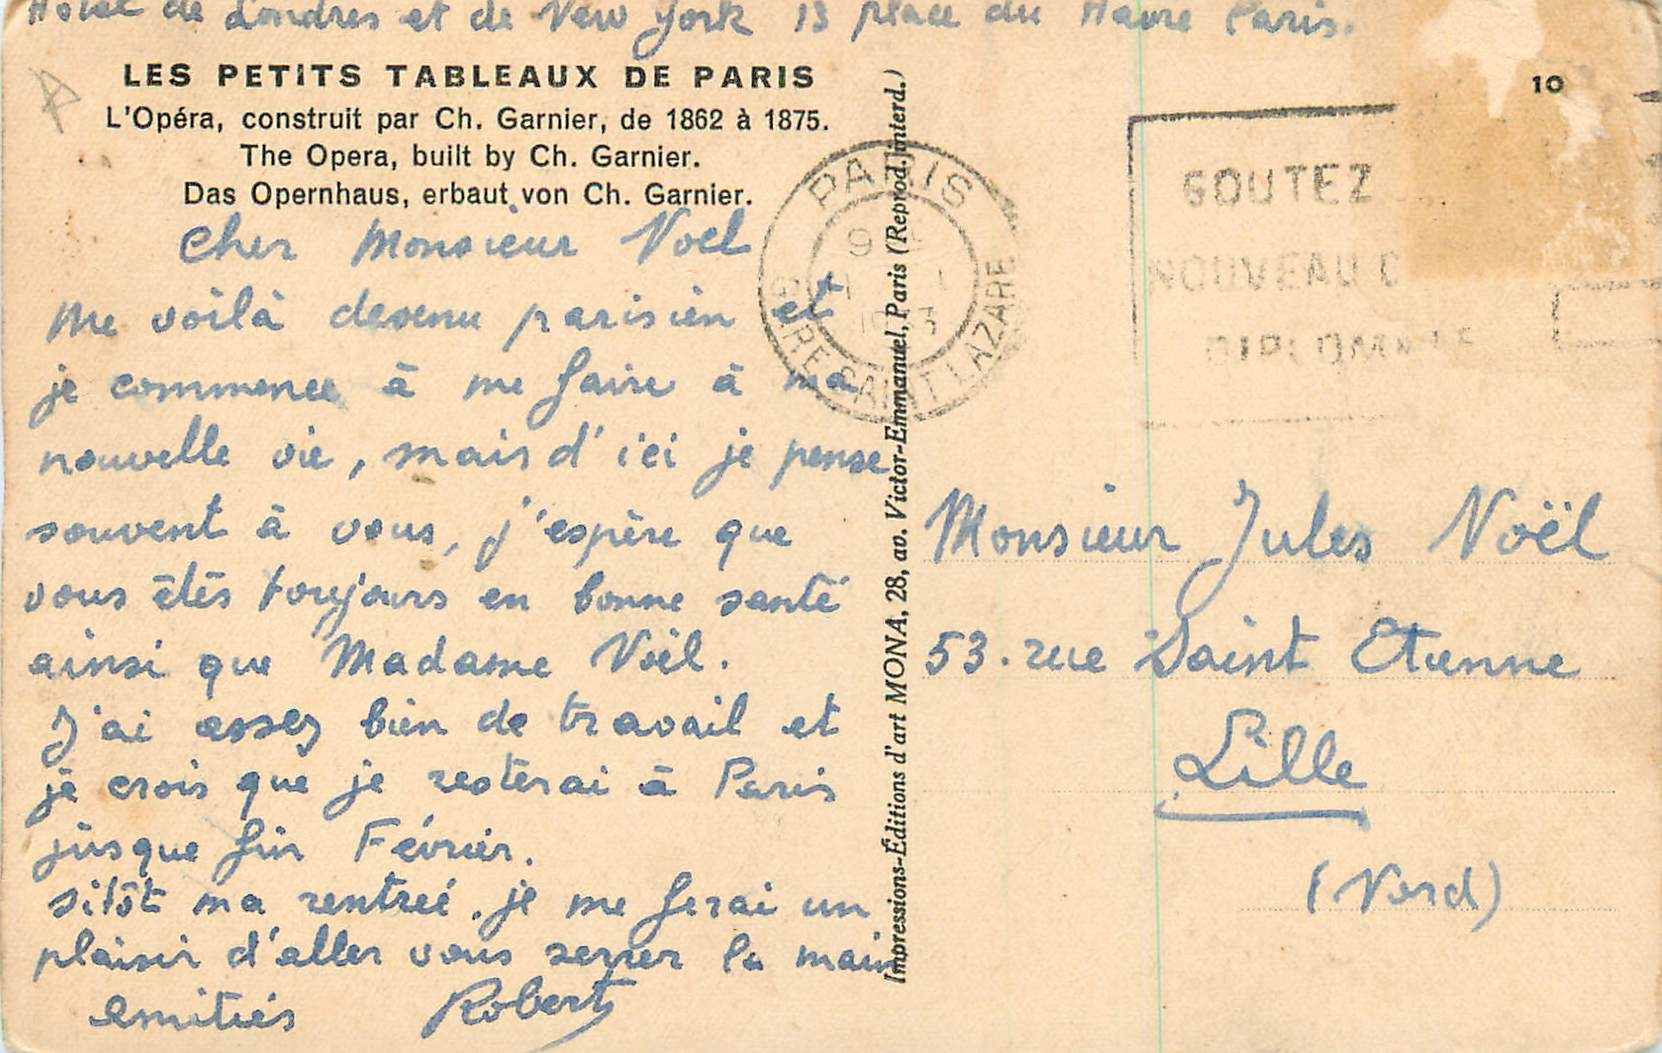 Hôtel de Londres et de New York 13 place du Havre Paris.
LES PETITS TABLEAUX DE PARIS
L'Opéra, construit par Ch. Garnier, de 1862 à 1875.
The Opera, built by Ch. Garnier.
Das Opernhaus, erbaut von Ch. Garnier.
Cher Monsieur Noël
Me voilà devenu parisien et
je commence à me faire à ma
nouvelle vie, mais d'ici je pense
souvent à vous, j'espère que
vous êtes toujours en bonne santé
ainsi que Madame Noël.
J'ai assez bien de travail et
je crois que je resterai à Paris
jusque fin Février.
Sitôt ma rentreé, je me ferai un
plaisir d'aller vous serrer la main
amitiés Robert
Impressions-Éditions d'art MONA, 28, av. Victor-Emmanuel, Paris (Reprod. interd.)
PARIS
GARE SAINT LAZARE
10
GOUTEZ
NOUVEAU
Monsieur Jules Noël
53. rue Saint Etienne
Lille
(Nord)